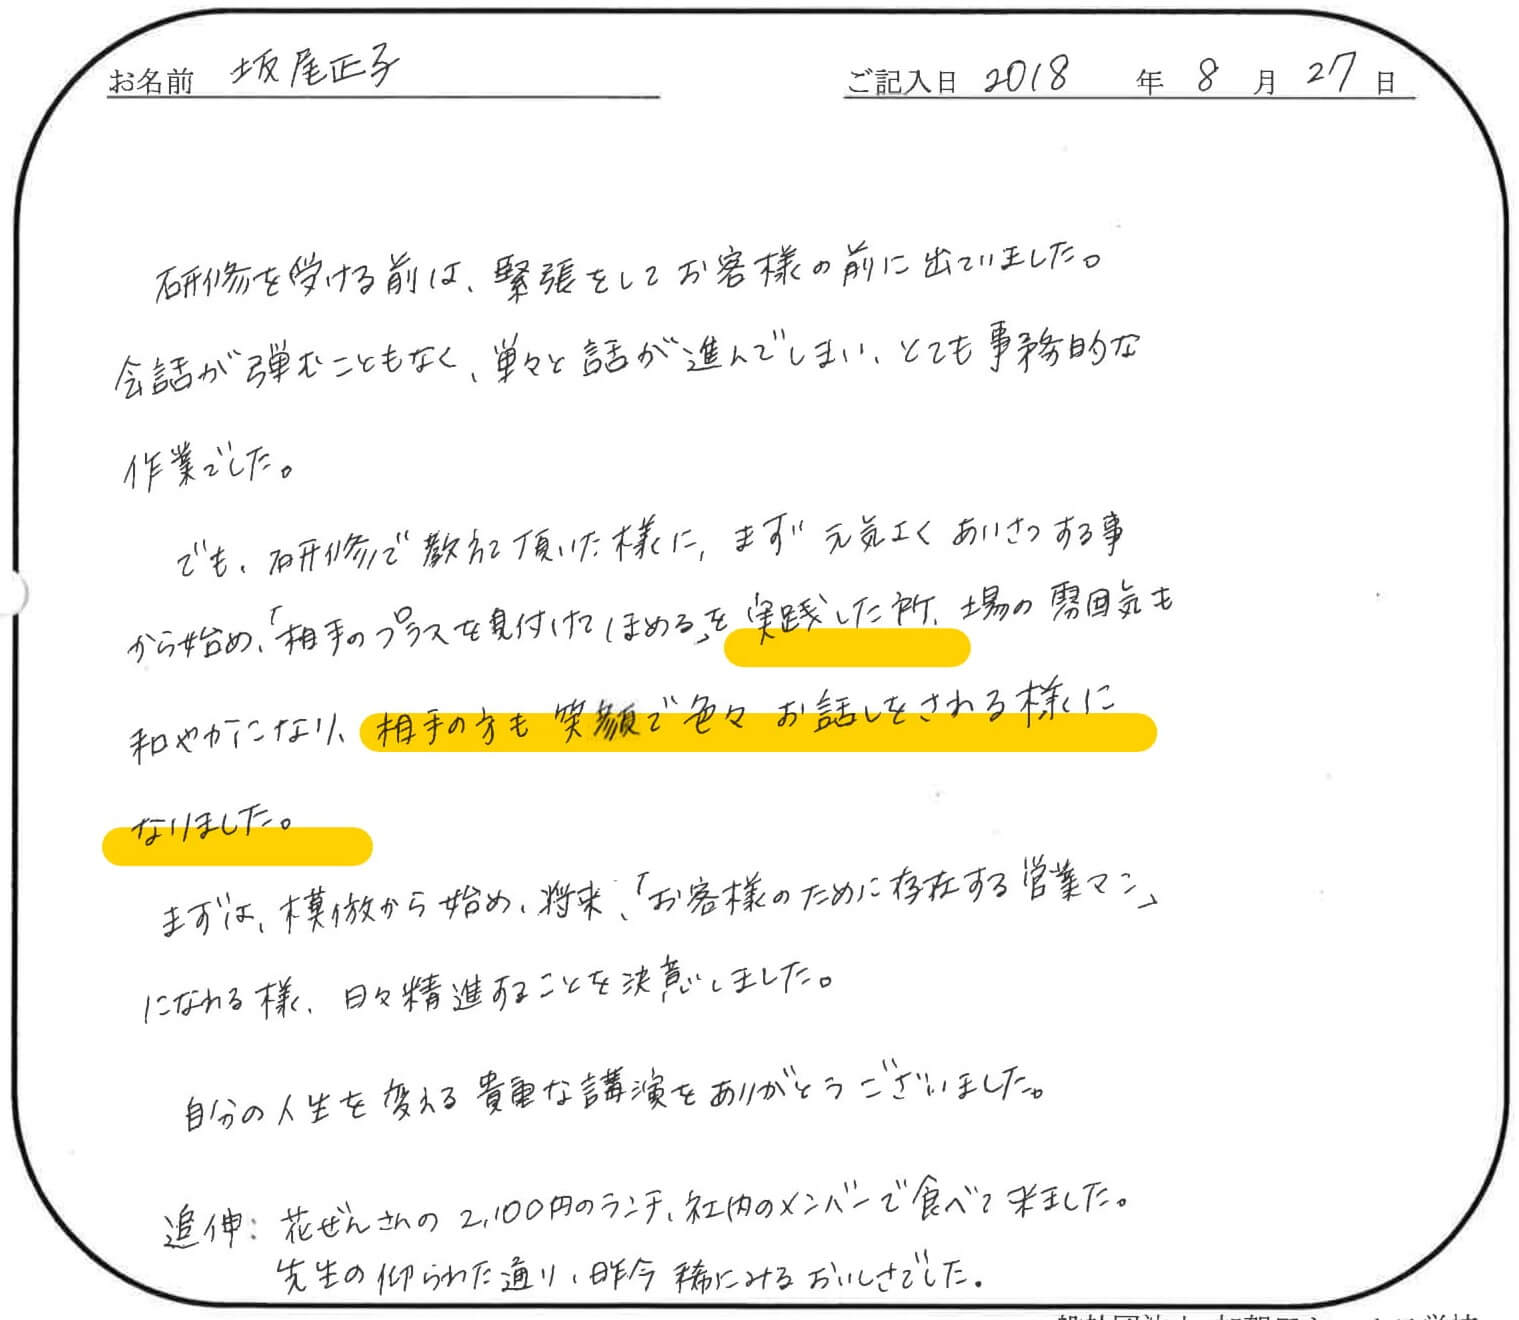 お名前 坂尾正子 ご記入日 2018 年 8 月 27 日
研修を受ける前は、緊張をしてお客様の前に出ていました。
会話が弾むこともなく、単々と話が進んでしまい、とても事務的な
作業でした。
でも、研修で教えて頂いた様に、まず元気よくあいさつする事
から始め、「相手のプラスを見付けてほめる」を実践した所、場の雰囲気も
和やかになり、相手の方も笑顔で色々お話しをされる様に
なりました。
まずは、模倣から始め、将来、「お客様のために存在する営業マン」
になれる様、日々精進することを決意しました。
自分の人生を変える貴重な講演をありがとうございました。
追伸：花ぜんさんの2,100円のランチ、社内のメンバーで食べて来ました。
先生の仰られた通り、昨今稀にみるおいしさでした。